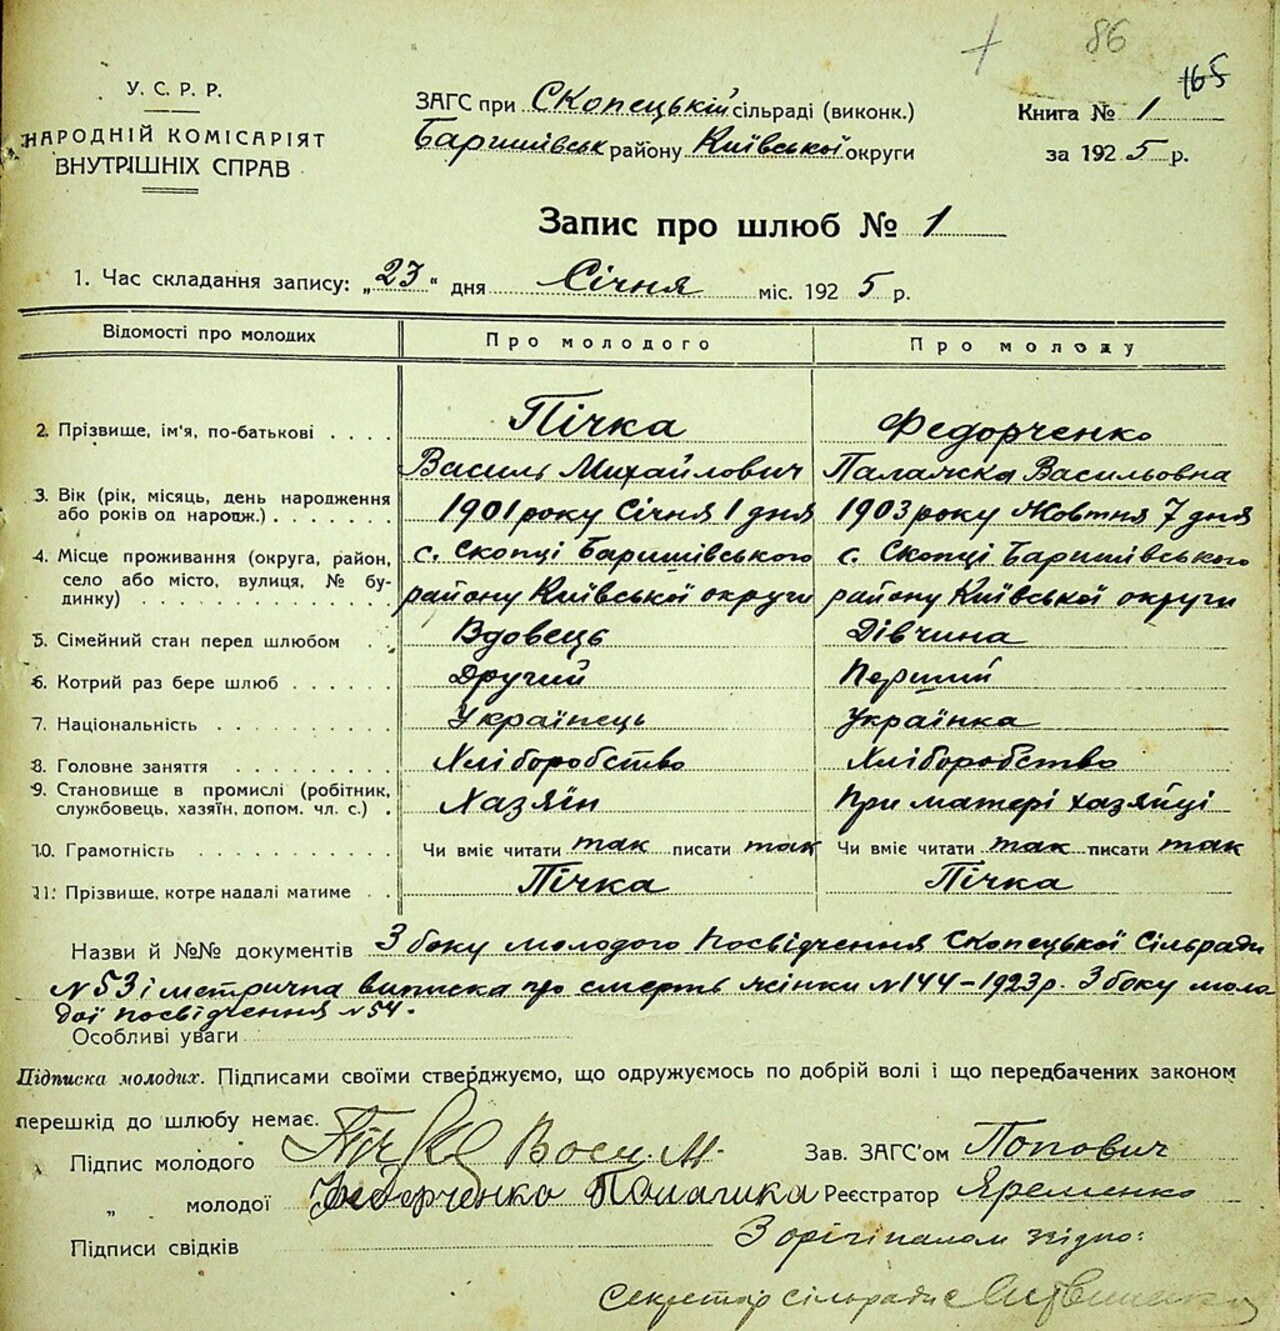 86
165
У. С. Р. Р.
НАРОДНІЙ КОМІСАРІЯТ
ВНУТРІШНІХ СПРАВ
ЗАГС при Скопецькій сільраді (виконк.)
Баришівськ району Київської округи
Книга № 1
за 1925 р.
Запис про шлюб № 1
1. Час складання запису: „23“ дня Січня міс. 1925 р.
Відомості про молодих Про молодого Про молоду
2. Прізвище, ім'я, по-батькові . . . . Пічка Федорченко
Василь Михайлович Палажка Васильовна
3. Вік (рік, місяць, день народження або років од народж.) . . . . . . . 1901 року Січня 1 дня 1903 року Жовтня 7 дня
4. Місце проживання (округа, район, с. Скопці Баришівського с. Скопці Баришівського
село або місто, вулиця, № будинку) . . . . . . . . . . . . . району Київської округи району Київської округи
5. Сімейний стан перед шлюбом . . Вдовець Дівчина
6. Котрий раз бере шлюб . . . . . . Другий Перший
7. Національність . . . . . . . . . . Українець Українка
8. Головне заняття . . . . . . . . . Хліборобство Хліборобство
9. Становище в промислі (робітник, службовець, хазяїн, допом. чл. с.) . Хазяїн При матері хазяйці
10. Грамотність . . . . . . . . . . . Чи вміє читати так писати так Чи вміє читати так писати так
11. Прізвище, котре надалі матиме . . Пічка Пічка
Назви й №№ документів З боку молодого Посвідчення Скопецької Сільради
N 53 і метрична виписка про смерть жінки N 144 – 1923 р. З боку моло
дої посвідчення N 54.
Особливі уваги
Підписка молодих. Підписами своїми стверджуємо, що одружуємось по добрій волі і що передбачених законом
перешкід до шлюбу немає.
Підпис молодого Пічка Вас. М. Зав. ЗАГС'ом Попович
„ молодої Федорченко Реєстратор Яременко
Підписи свідків З орігіналом згідно:
Секретар сільради